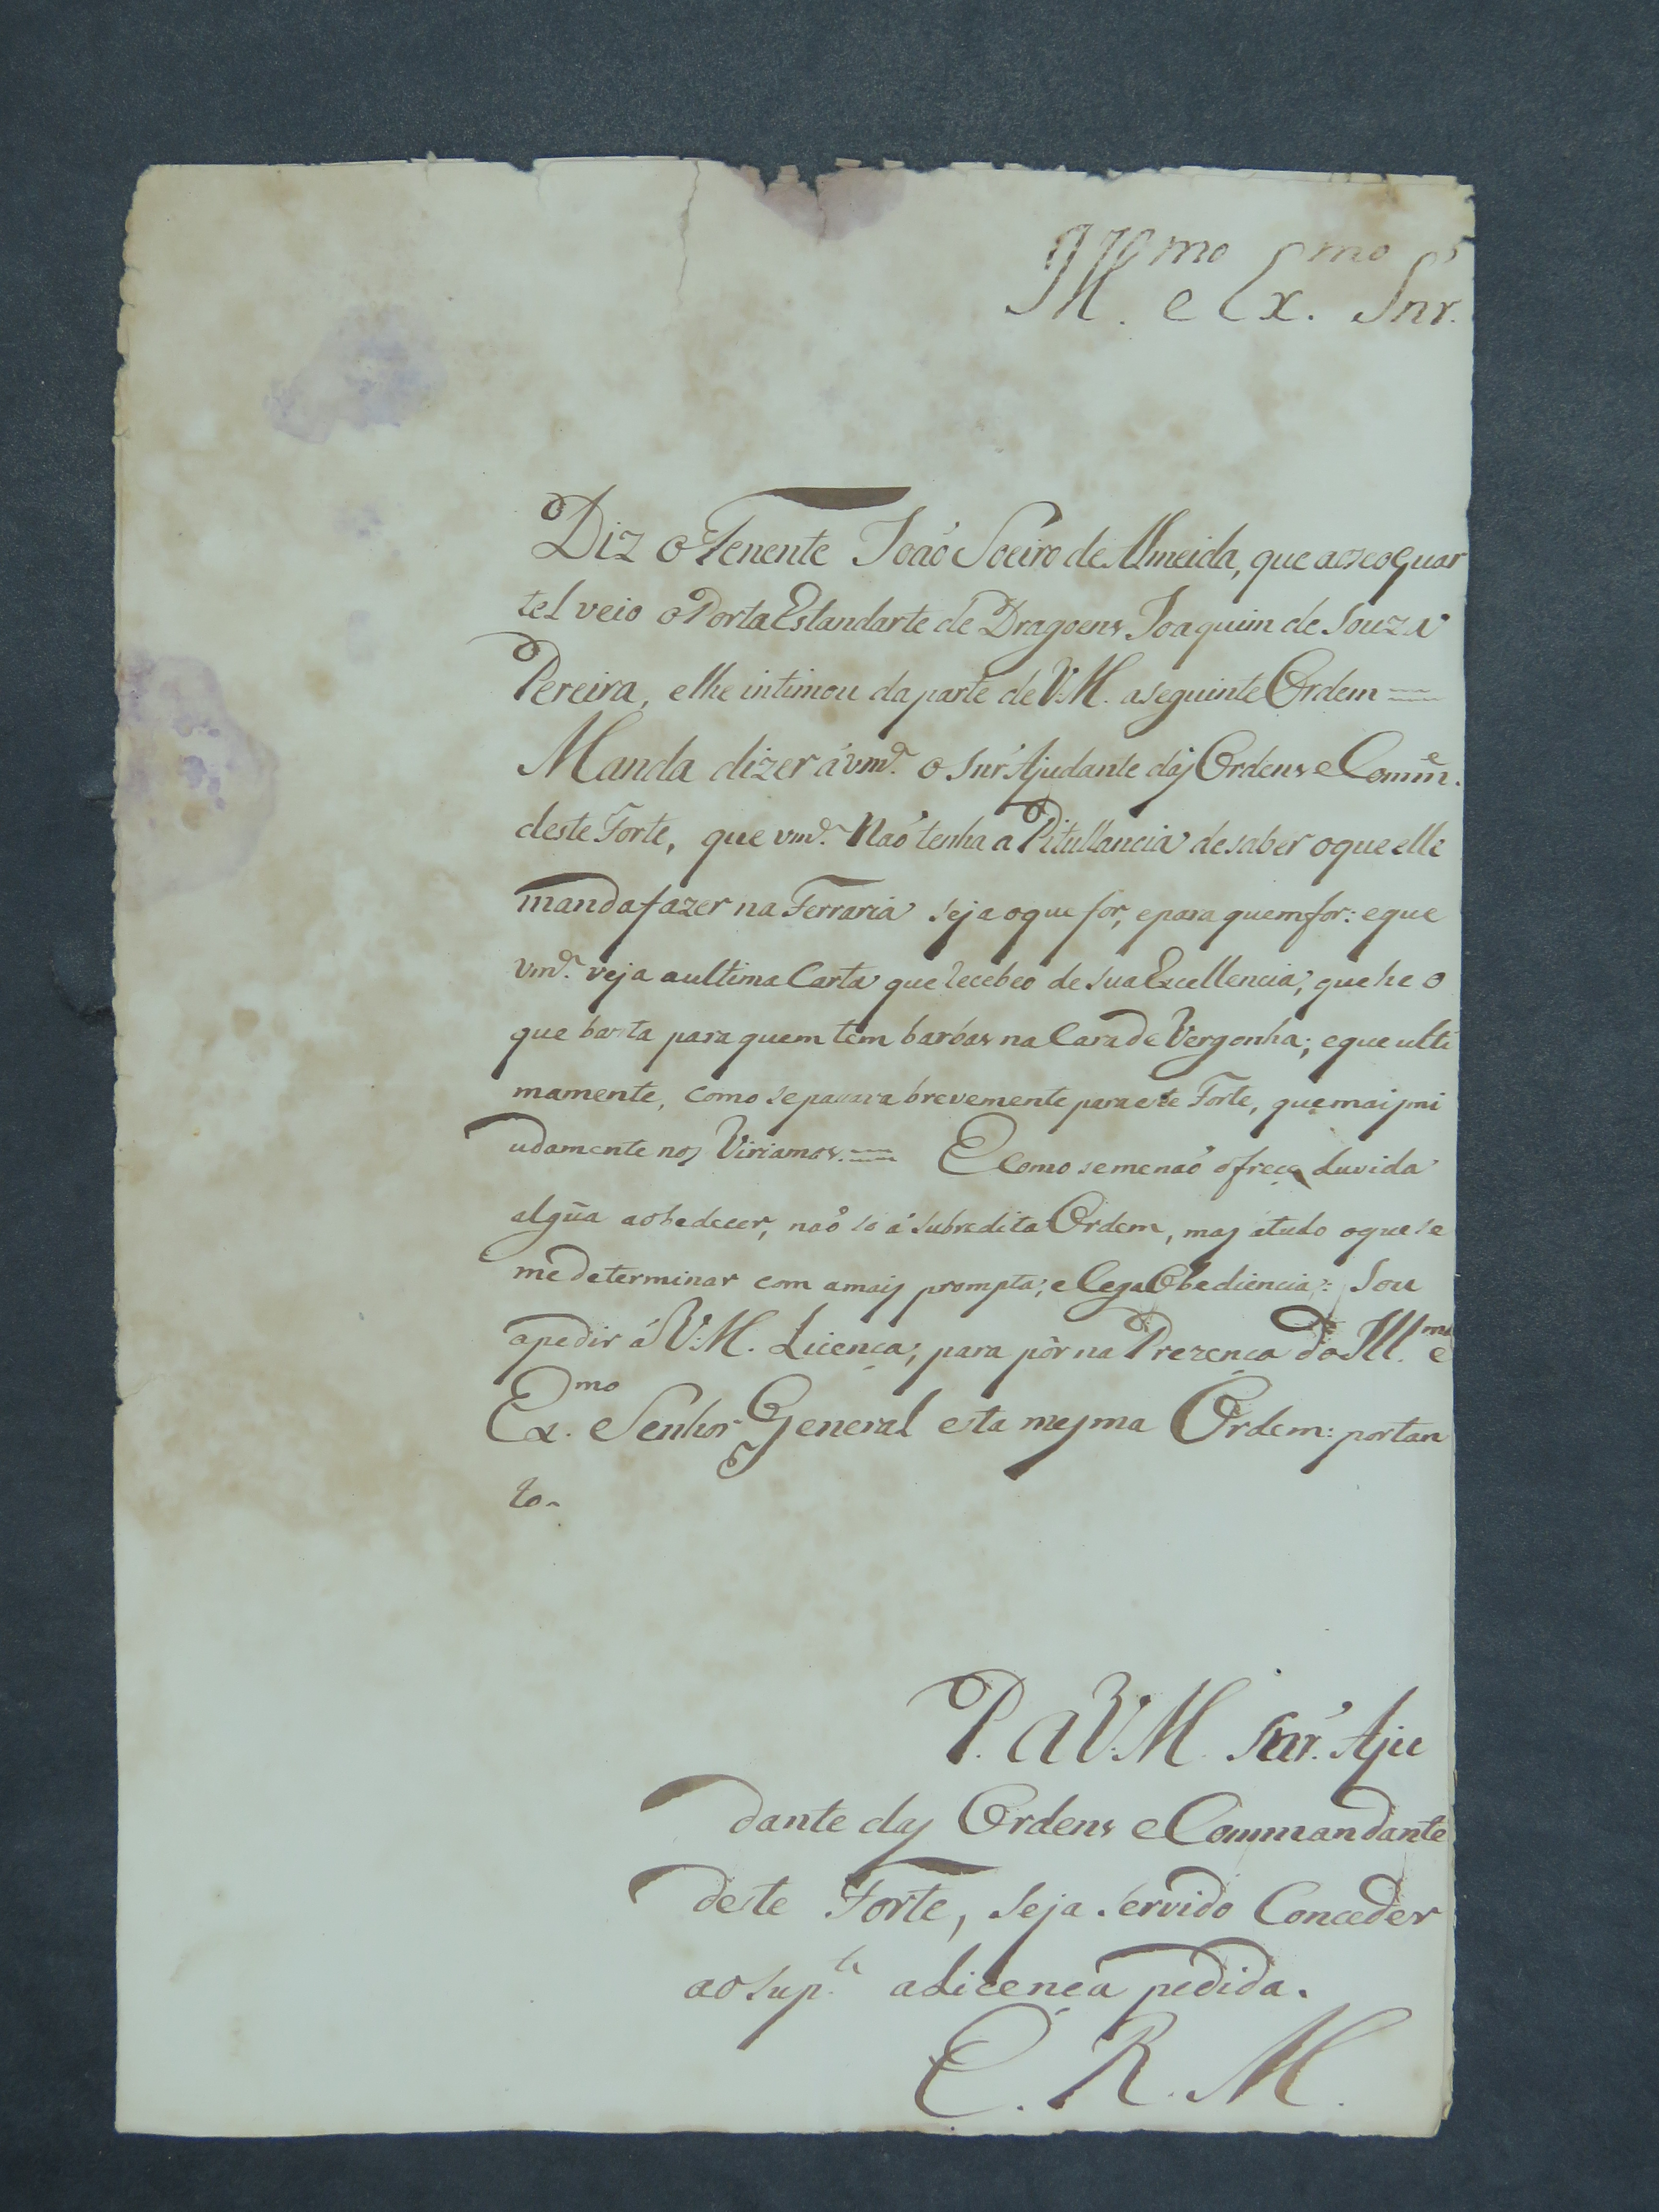 Ill.mo e Ex.mo Snr.
Diz o Tenente João Soeiro de Almeida, que ao seo quar
tel veio o Porta Estandarte de Dragoens Joaquim de Souza
Pereira, e lhe intimou da parte de V.M. a seguinte Ordem =
Manda dizer á vm.ce o Snr' Ajudante das Ordens e Comm.e
deste Forte, que vm.ce Naõ tenha a Pitullancia de saber o que elle
manda fazer na Ferraria seja o que for, e para quem for: e que
vm.ce veja a ultima Carta que recebeo de sua Excellencia, que he o
que basta para quem tem barbas na Cara de Vergonha; e que ulti
mamente, como se passava brevemente para este Forte, que mais mi
udamente nos Viriamos. = E como se me naõ ofrece duvida
algũa a obedecer, naõ só á subredita Ordem, mas a tudo o que se
me determinar com a mais prompta, e Cega Obediencia: Sou
a pedir á V.M. Licença, para pôr na Prezença do Ill.mo e
Ex.mo Senhor General esta mesma Ordem: portan
to-
P. a V.M. Snr.' Aju
dante das Ordens e Commandante
deste Forte, seja servido Conceder
ao Sup.te a Licença pedida.
E. R. M.